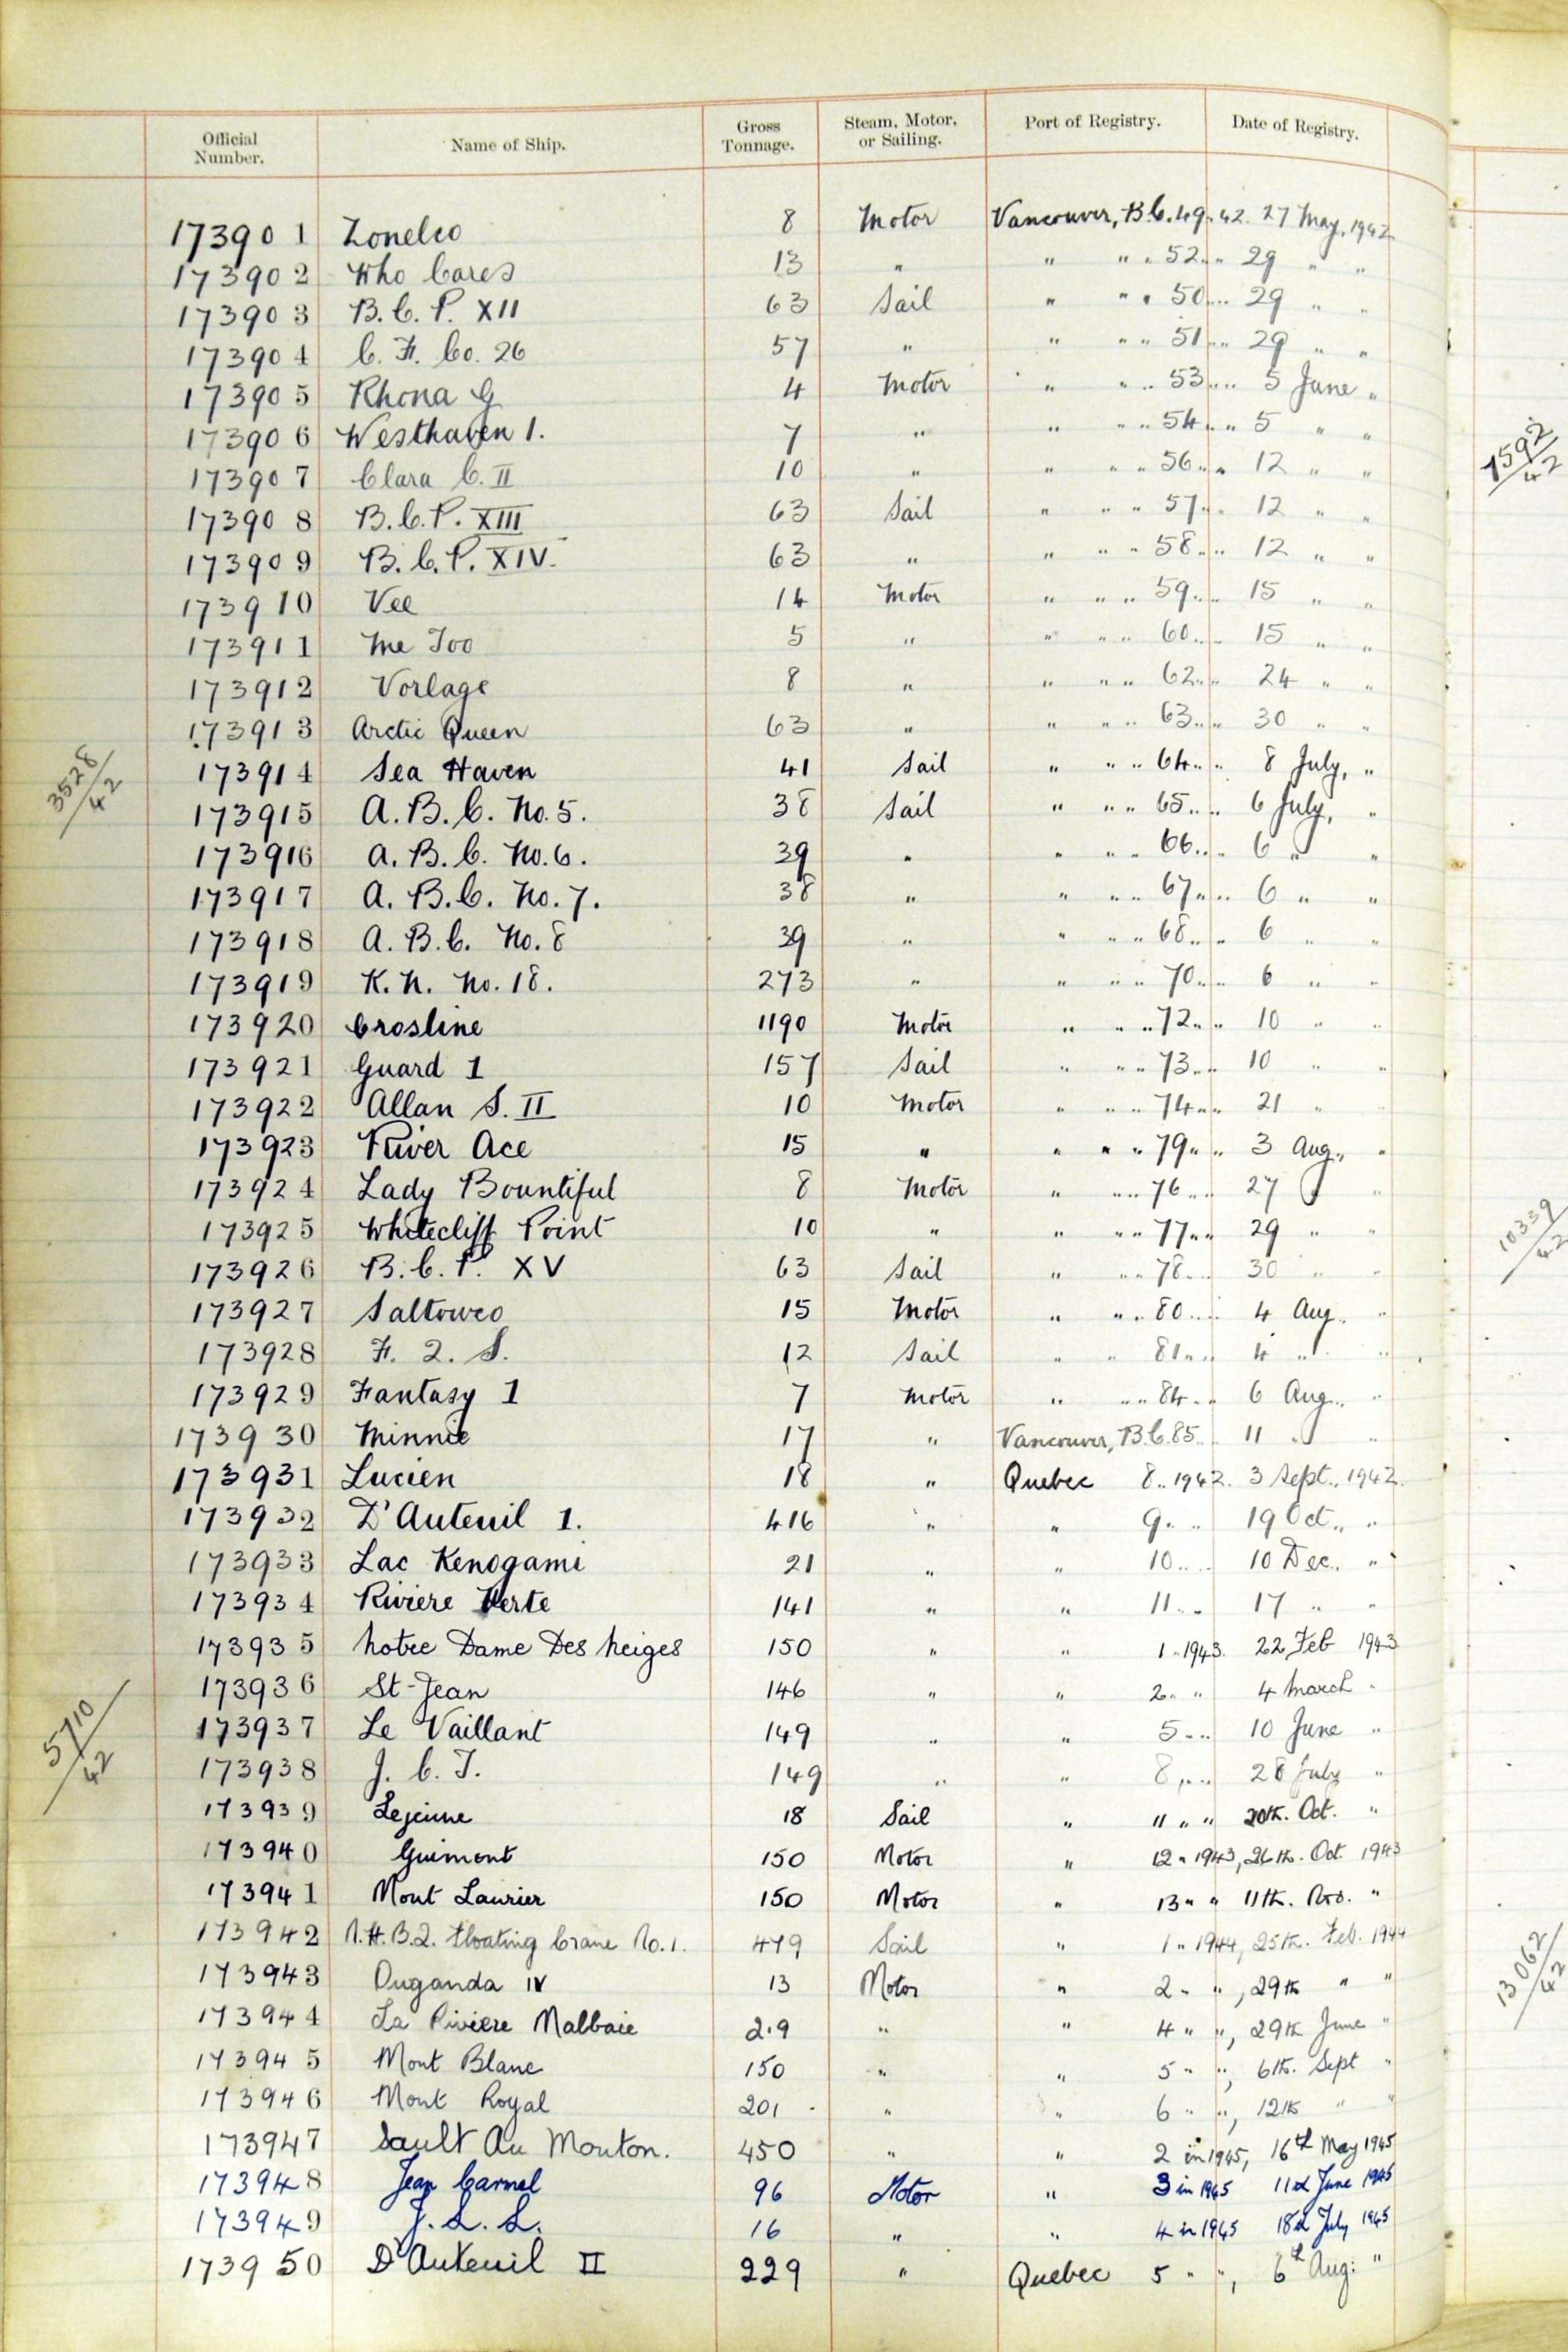 Official Number. Name of Ship. Gross Tonnage. Steam, Motor, or Sailing. Port of Registry. Date of Registry.
173901 Zonelco 8 Motor Vancouver, B.C. 49 .. 42. 27 May, 1942
173902 Who Cares 13 " " " " 52 " " 29 " "
173903 B.C.P. XII 63 Sail " " " 50 " " 29 " "
173904 C. F. Co. 26 57 " " " " 51 " " 29 " "
173905 Rhona G 4 Motor " " " 53 " " 5 June "
173906 Westhaven 1. 7 " " " " 54 " " 5 " "
173907 Clara C. II 10 " " " " 56 " " 12 " "
173908 B.C.P. XIII 63 Sail " " " 57 " " 12 " "
173909 B.C.P. XIV. 63 " " " " 58 " " 12 " "
173910 Vee 14 Motor " " " 59 " " 15 " "
173911 Me Too 5 " " " " 60 " " 15 " "
173912 Vorlage 8 " " " " 62 " " 24 " "
173913 Arctic Queen 63 " " " " 63 " " 30 " "
3528/42
173914 Sea Haven 41 Sail " " " 64 " " 8 July, "
173915 A.B.C. No. 5. 38 Sail " " " 65 " " 6 July, "
173916 A.B.C. No. 6. 39 " " " " 66 " " 6 " "
173917 A.B.C. No. 7. 38 " " " " 67 " " 6 " "
173918 A.B.C. No. 8 39 " " " " 68 " " 6 " "
173919 K.N. No. 18. 273 " " " " 70 " " 6 " "
173920 Crosline 1190 Motor " " " 72 " " 10 " "
173921 Guard 1 157 Sail " " " 73 " " 10 " "
173922 Allan S. II 10 Motor " " " 74 " " 21 "
173923 River Ace 15 " " " " 79 " " 3 Aug., "
173924 Lady Bountiful 8 Motor " " " 76 " " 27 "
173925 Whitecliff Point 10 " " " " 77 " " 29 " "
173926 B.C.P. XV 63 Sail " " " 78 " " 30 " "
173927 Saltowco 15 Motor " " " 80 " " 4 Aug. "
173928 F. 2. S. 12 Sail " " 81 " " 4 " "
173929 Fantasy 1 7 Motor " " " 84 " " 6 Aug., "
173930 Minnie 17 " Vancouver, B.C. 85 " 11 " "
173931 Lucien 18 " Quebec 8 .. 1942. 3 Sept., 1942.
173932 D'Auteuil 1. 416 " " 9 " " 19 Oct., "
173933 Lac Kenogami 21 " " 10 " " 10 Dec., "
173934 Riviere Verte 141 " " 11 " " 17 " "
173935 Notre Dame Des Neiges 150 " " 1 " 1943. 22 Feb 1943
173936 St-Jean 146 " " 2 " " 4 March "
5710/42
173937 Le Vaillant 149 " " 5 " " 10 June "
173938 J. C. T. 149 " " 8 " " 28 July "
173939 Lejeune 18 Sail " 11 " " 20th. Oct. "
173940 Guimont 150 Motor " 12 " 1943, 26th. Oct. 1943
173941 Mont Laurier 150 Motor " 13 " " 11th. Nov. "
173942 N.H.B.Q. Floating Crane No. 1. 479 Sail " 1 " 1944, 25th. Feb. 1944
173943 Ouganda IV 13 Motor " 2 " ", 29th " "
173944 La Riviere Malbaie 219 " " 4 " ", 29th June "
173945 Mont Blanc 150 " " 5 " ", 6th. Sept "
173946 Mont Royal 201 " " 6 " ", 12th " "
173947 Sault Au Mouton. 450 " " 2 in 1945, 16th May 1945
173948 Jean Carmel 96 Motor " 3 in 1945 11th June 1945
173949 J. L. L. 16 " " 4 in 1945 18th July 1945
173950 D'Auteuil II 229 " Quebec 5 " ", 6th Aug: "
7592/42
10339/42
13062/42